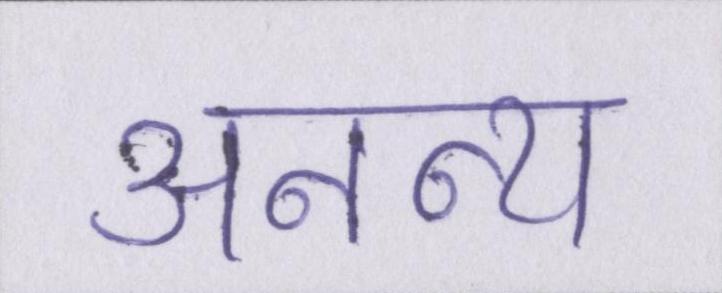 अनन्य